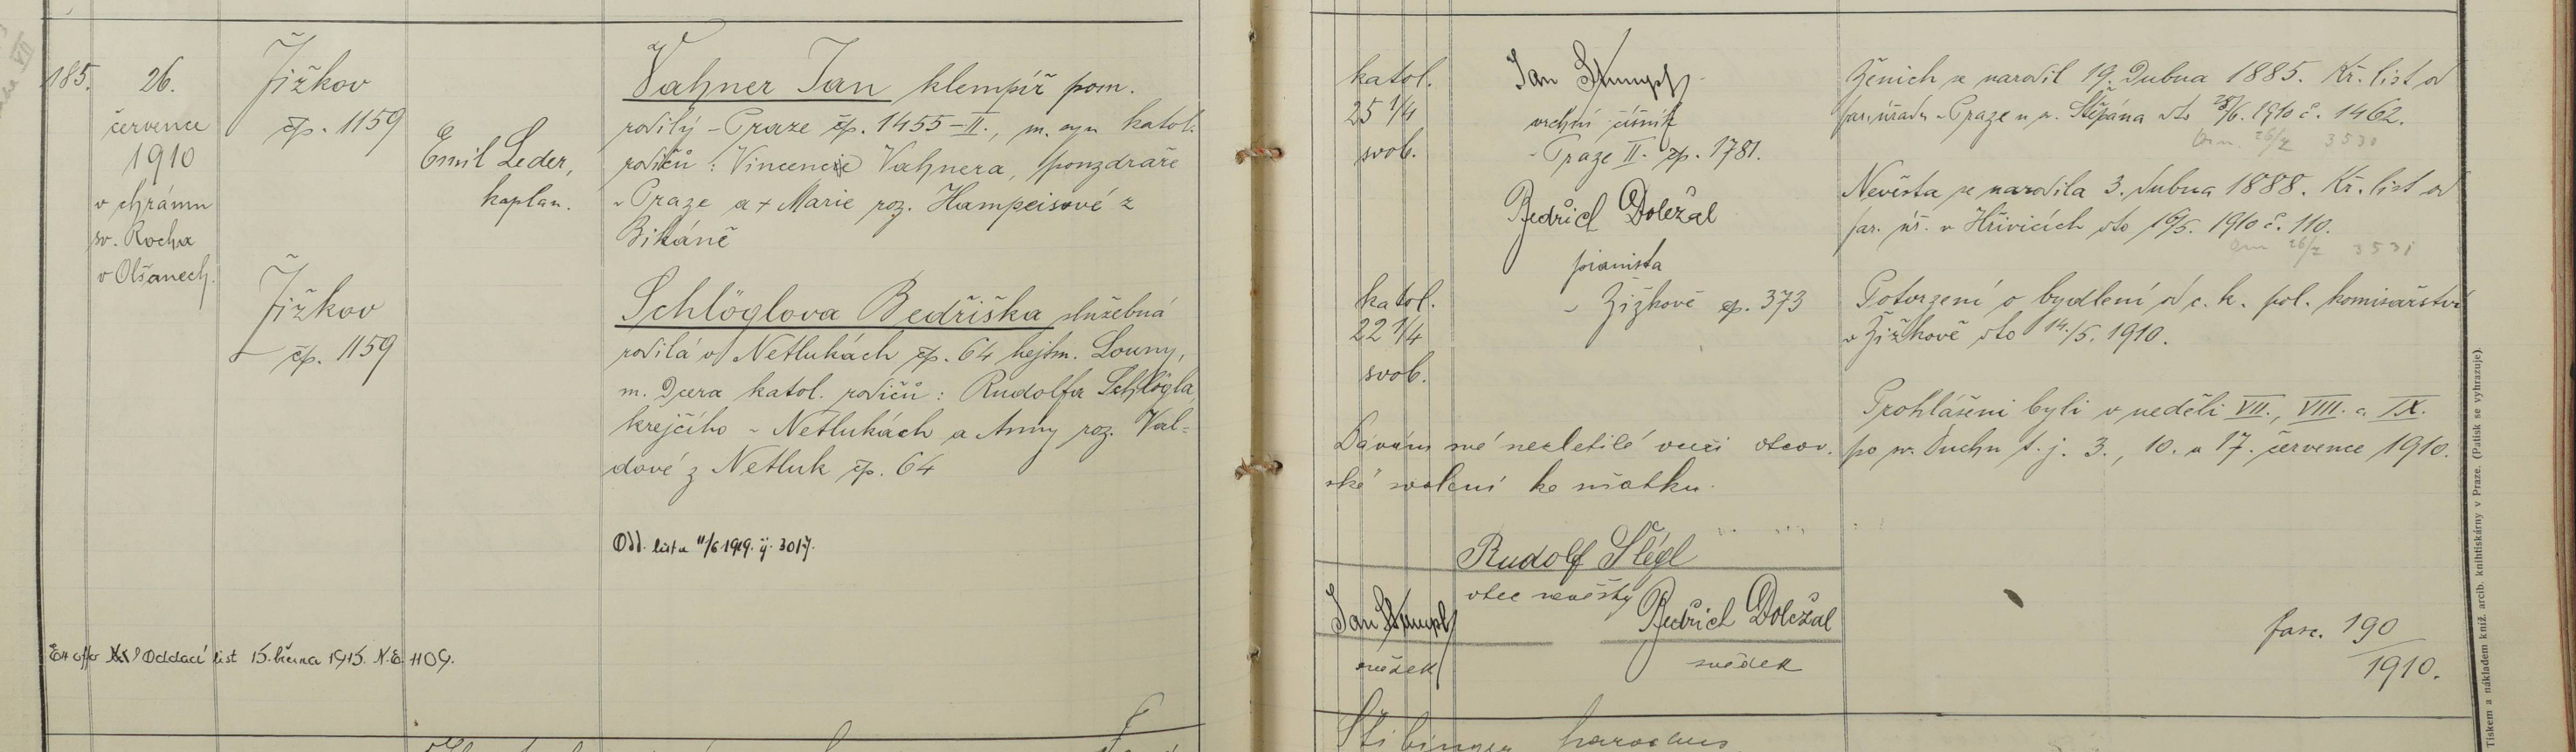 185.
26.
července
1910
v chrámu
sv. Rocha
v Olšanech.
Žižkov
čp. 1159
Žižkov
čp. 1159
Emil Leder,
kaplan.
Vahner Jan klempíř pom.
rodilý v Praze čp. 1455-II., m. syn katol.
rodičů: Vincencie Vahnera,
v Praze a + Marie roz. Hampeisové z
Bikáně
Schlöglova Bedřiška služebná
rodilá v Netlukách čp. 64 hejtm. Louny,
m. dcera katol. rodičů: Rudolfa Schlögla,
krejčího v Netlukách a Anny roz. Val=
dové z Netluk čp. 64
Odd. list a 11/6 1919. 3017.
Oddací list 15. března 1915. N.E. 1109.
katol.
25 1/4
svob.
katol.
22 1/4
svob.
Jan Stumpf
vrchní číšník
v Praze II. čp. 1781.
Bedřich Doležal
pianista
v Žižkově čp. 373
Dávám své nezletilé dceři otcov.
ské svolení ke sňatku.
Rudolf Šlégl
otec nevěsty
Jan Stumpf
svědek
Bedřich Doležal
svědek
Ženich se narodil 19. Dubna 1885. Kř. list od
far. úřadu v Praze u sv. Štěpána dto 25/6. 1910 č. 1462.
26/7 3530
Nevěsta se narodila 3. dubna 1888. Kř. list od
far. úř. v Hřivicích dto 16/5. 1910 č. 110.
26/7 3531
Potvrzení o bydlení od c. k. pol. komisařství
v Žižkově dto 14./5. 1910.
Prohlášeni byli v neděli VII., VIII. a IX.
po sv. Duchu t. j. 3., 10. a 17. července 1910.
fasc. 190
1910.
Tiskem a nákladem kníž. arcib. knihtiskárny v Praze. (Patisk se vyhrazuje).